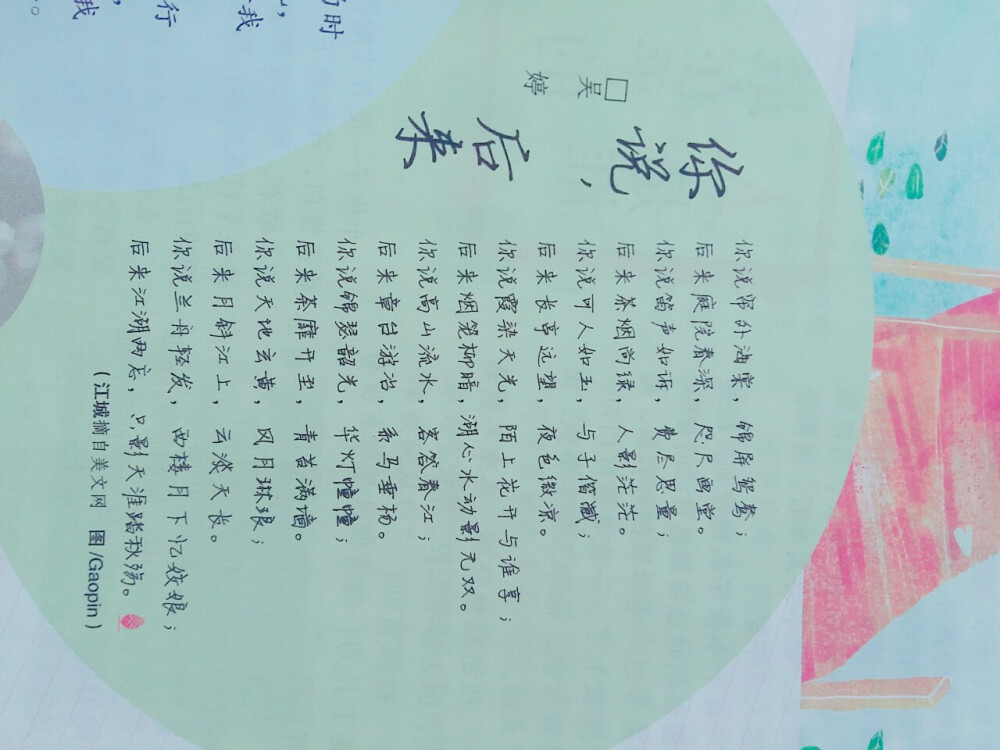 时
我
行
我
你说，后来
□吴 婷
你说帘外海棠，锦屏鸳鸯；
后来庭院春深，咫尺画堂。
你说笛声如诉，费尽思量；
后来茶烟尚绿，人影茫茫。
你说可人如玉，与子偕臧；
后来长亭远望，夜色微凉。
你说霞染天光，陌上花开与谁享；
后来烟笼柳暗，湖心水动影无双。
你说高山流水，客答春江；
后来章台游冶，系马垂杨。
你说锦瑟韶光，华灯幢幢；
后来荼靡开至，青苔满墙。
你说天地玄黄，风月琳琅；
后来月斜江上，云淡天长。
你说兰舟轻发，西楼月下忆娘；
后来江湖两忘，只影天涯踏秋殇。
（江城摘自美文网 图/Gaopin）